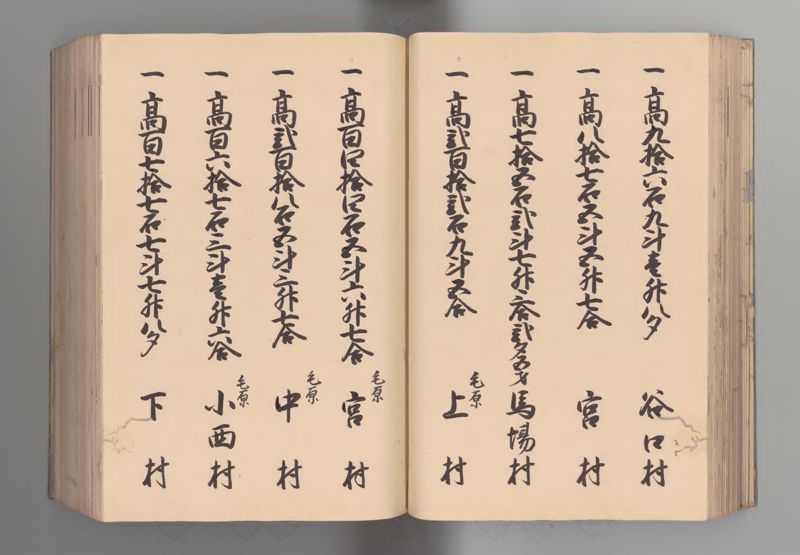 一 高九拾六石九斗壱升八夕 谷口村
一 高八拾七石五斗五升七合 宮村
一 高七拾五石弐斗七升六合弐夕五才 馬場村
一 高弐百拾弐石九斗五合 毛原 上村
一 高百四拾四石五斗六升七合 毛原 宮村
一 高弐百拾八石五斗三升七合 毛原 中村
一 高百六拾七石三斗壱升六合 毛原 小西村
一 高百七拾七石七斗七升八夕 下村